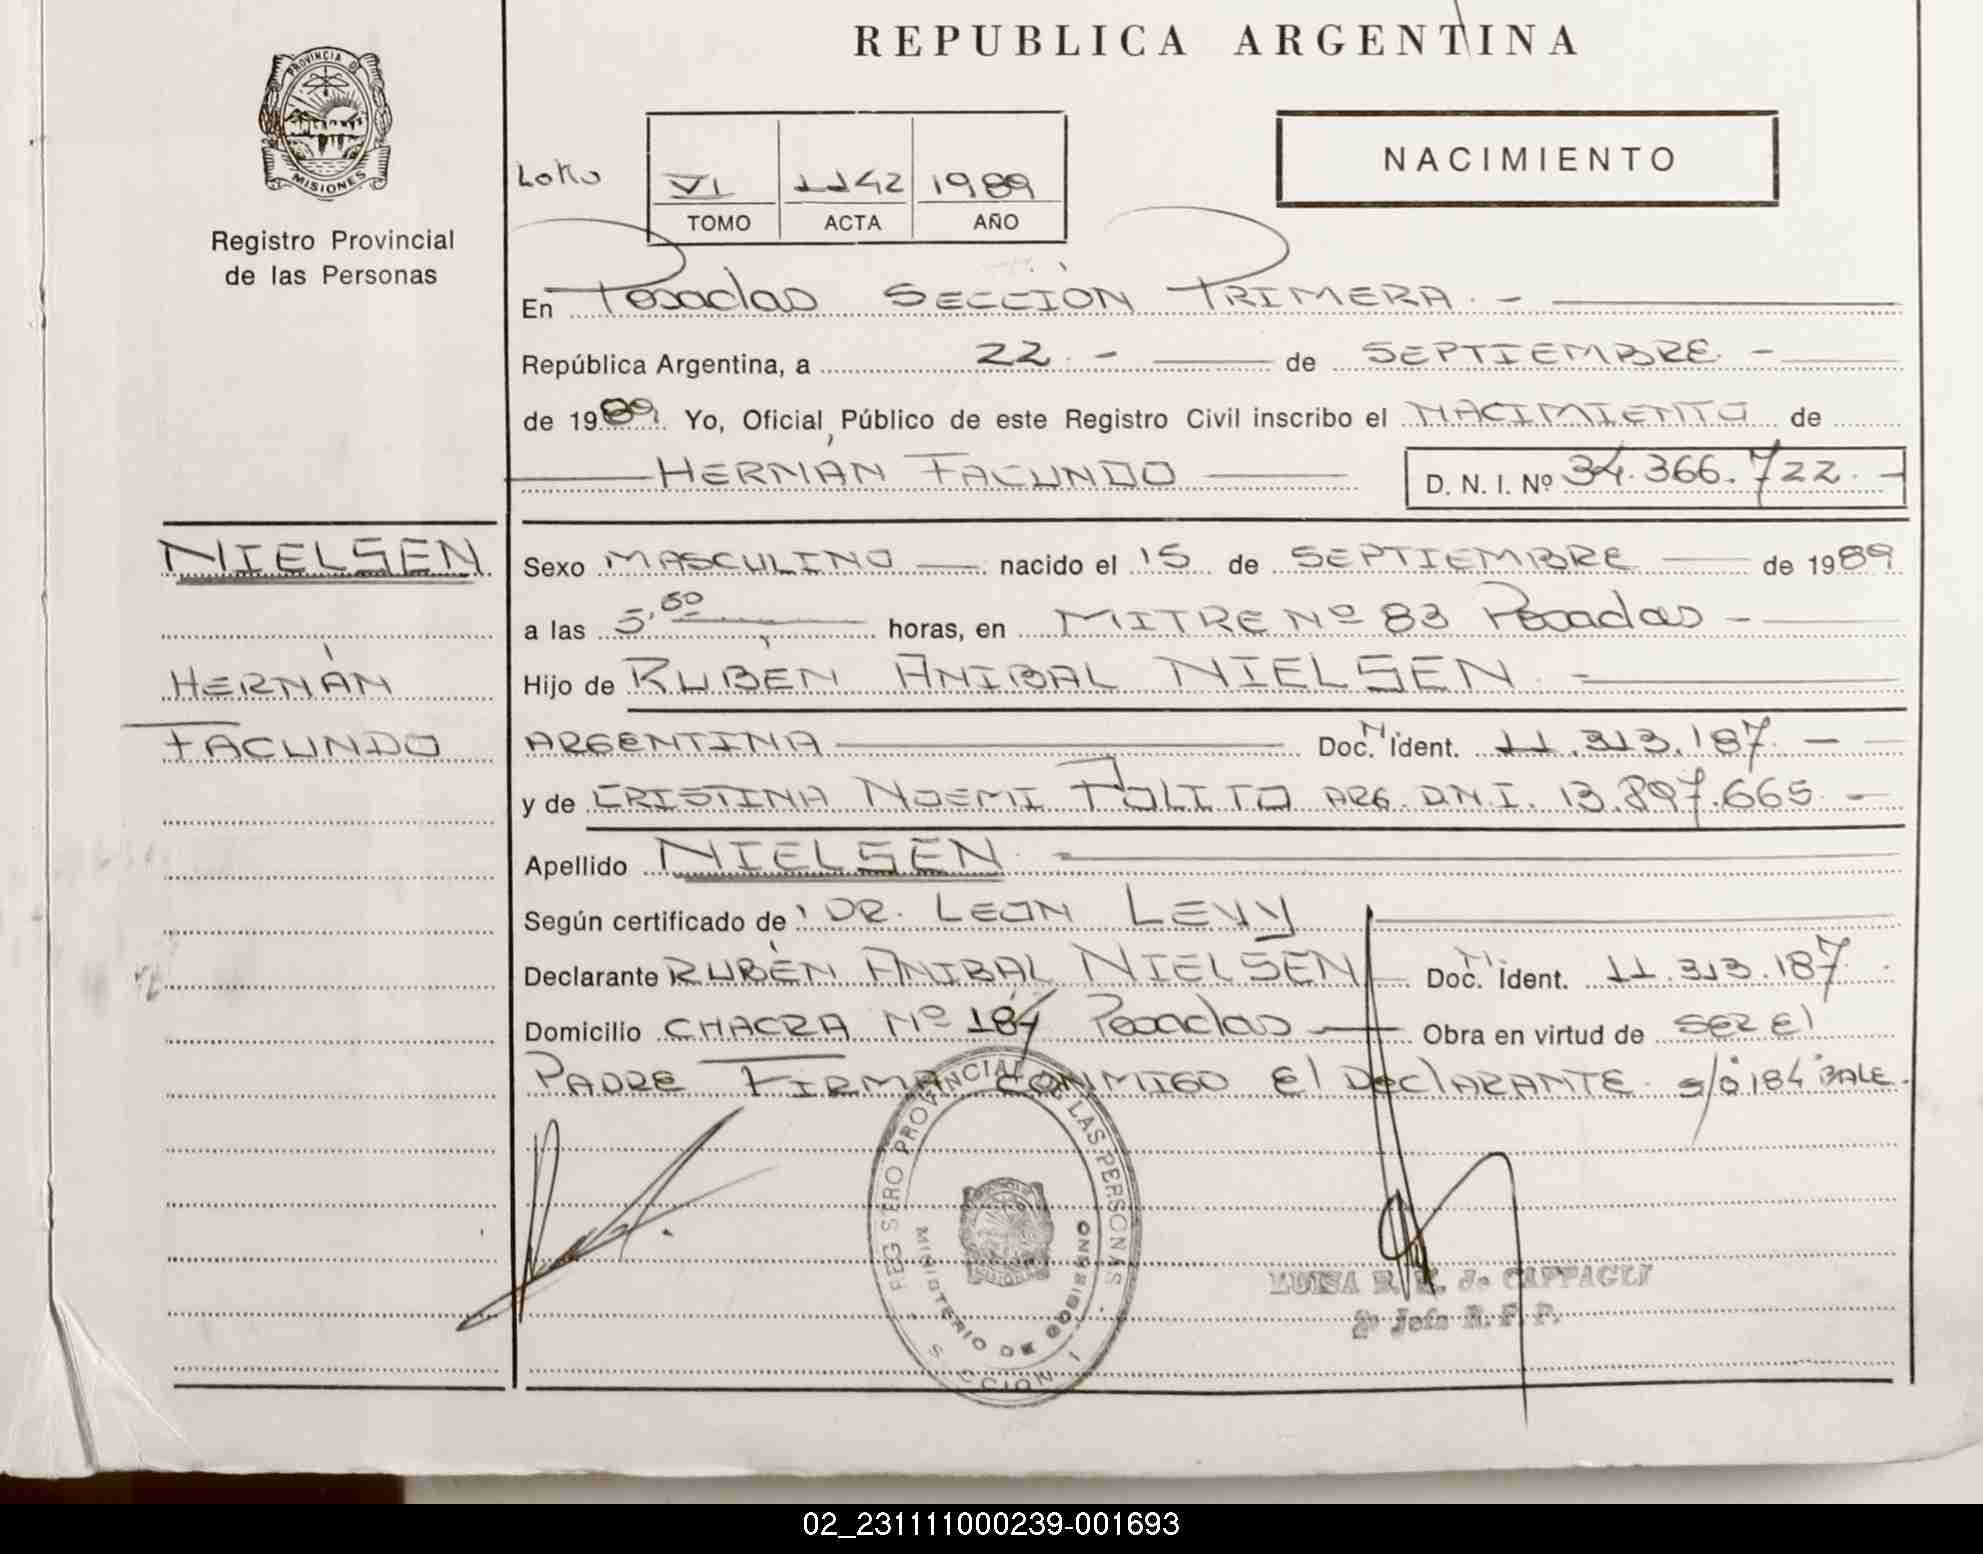 REPUBLICA ARGENTINA
PROVINCIA DE
MISIONES
Registro Provincial
de las Personas
NACIMIENTO
VI 1142 1989
TOMO ACTA AÑO
En Posadas SECCIÓN PRIMERA.-
República Argentina, a 22.- de SEPTIEMBRE.-
de 1989. Yo, Oficial Público de este Registro Civil inscribo el NACIMIENTO de
HERNÁN FACUNDO D. N. I. Nº 34.366.722.-
NIELSEN
HERNÁN
FACUNDO
Sexo MASCULINO nacido el 15 de SEPTIEMBRE de 1989
a las 5,50 horas, en MITRE Nº 83 Posadas -
Hijo de RUBÉN ANIBAL NIELSEN.-
ARGENTINA Doc. N. Ident. 11.313.187.-
y de CRISTINA NOEMI POLITO ARG. D.N.I. 13.897.665.-
Apellido NIELSEN.-
Según certificado de DR. LEON LEVY
Declarante RUBÉN ANIBAL NIELSEN Doc. N. Ident. 11.313.187.
Domicilio CHACRA Nº 184 Posadas Obra en virtud de SER El
PADRE FIRMA CONMIGO El DEClARANTE. s/o 184 BALE.
REGISTRO PROVINCIAL DE LAS PERSONAS
MINISTERIO DE GOBIERNO
SECCION 1
LUISA de CAPPAGLI
2º Jefe R. P. P.
02_231111000239-001693